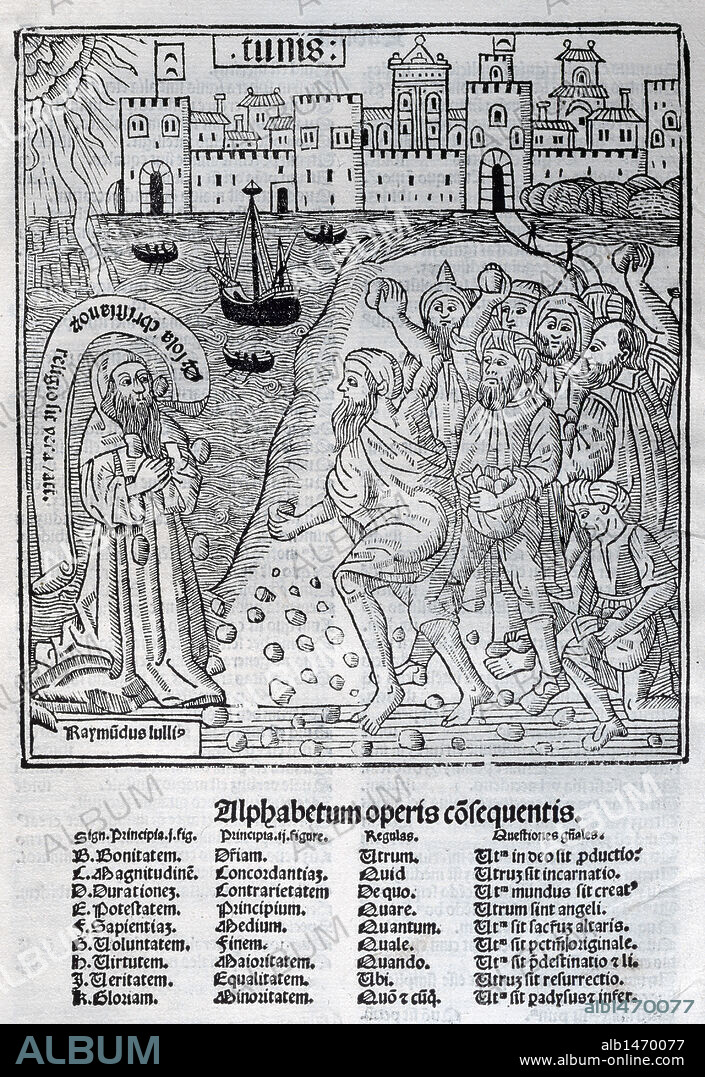 .tunis:
Et sola christianoꝝ
religio sit vera / ꝛc̃.
Raymũdus lulliꝰ
Alphabetum operis cõsequentis.
Sign. Principia .j. fig. Principia .ij. figure. Regulas. Questiones gñales.
B. Bonitatem. Dr̃iam. Utrum. Utꝝ in deo sit ꝓductio?
C. Magnitudinẽ. Concordantiaꝫ. Quid Utruꝫ sit incarnatio.
D. Durationeꝫ. Contrarietatem De quo. Utꝝ mundus sit creatꝰ
E. Potestatem. Principium. Quare. Utrum sint angeli.
F. Sapientiaꝫ. Medium. Quantum. Utꝝ sit sacr̃uꝫ altaris.
G. Uoluntatem. Finem. Quale. Utꝝ sit pctm̃ originale.
H. Uirtutem. Maioritatem. Quando. Utꝝ sit p̃destinatio ⁊ li.
J. Ueritatem. Equalitatem. Ubi. Utruꝫ sit resurrectio.
K. Gloriam. Minoritatem. Quõ ⁊ cũq̃. Utꝝ sit padysus ⁊ infer.
alb1470077
ALBUM
alb1470077
www.album-online.com